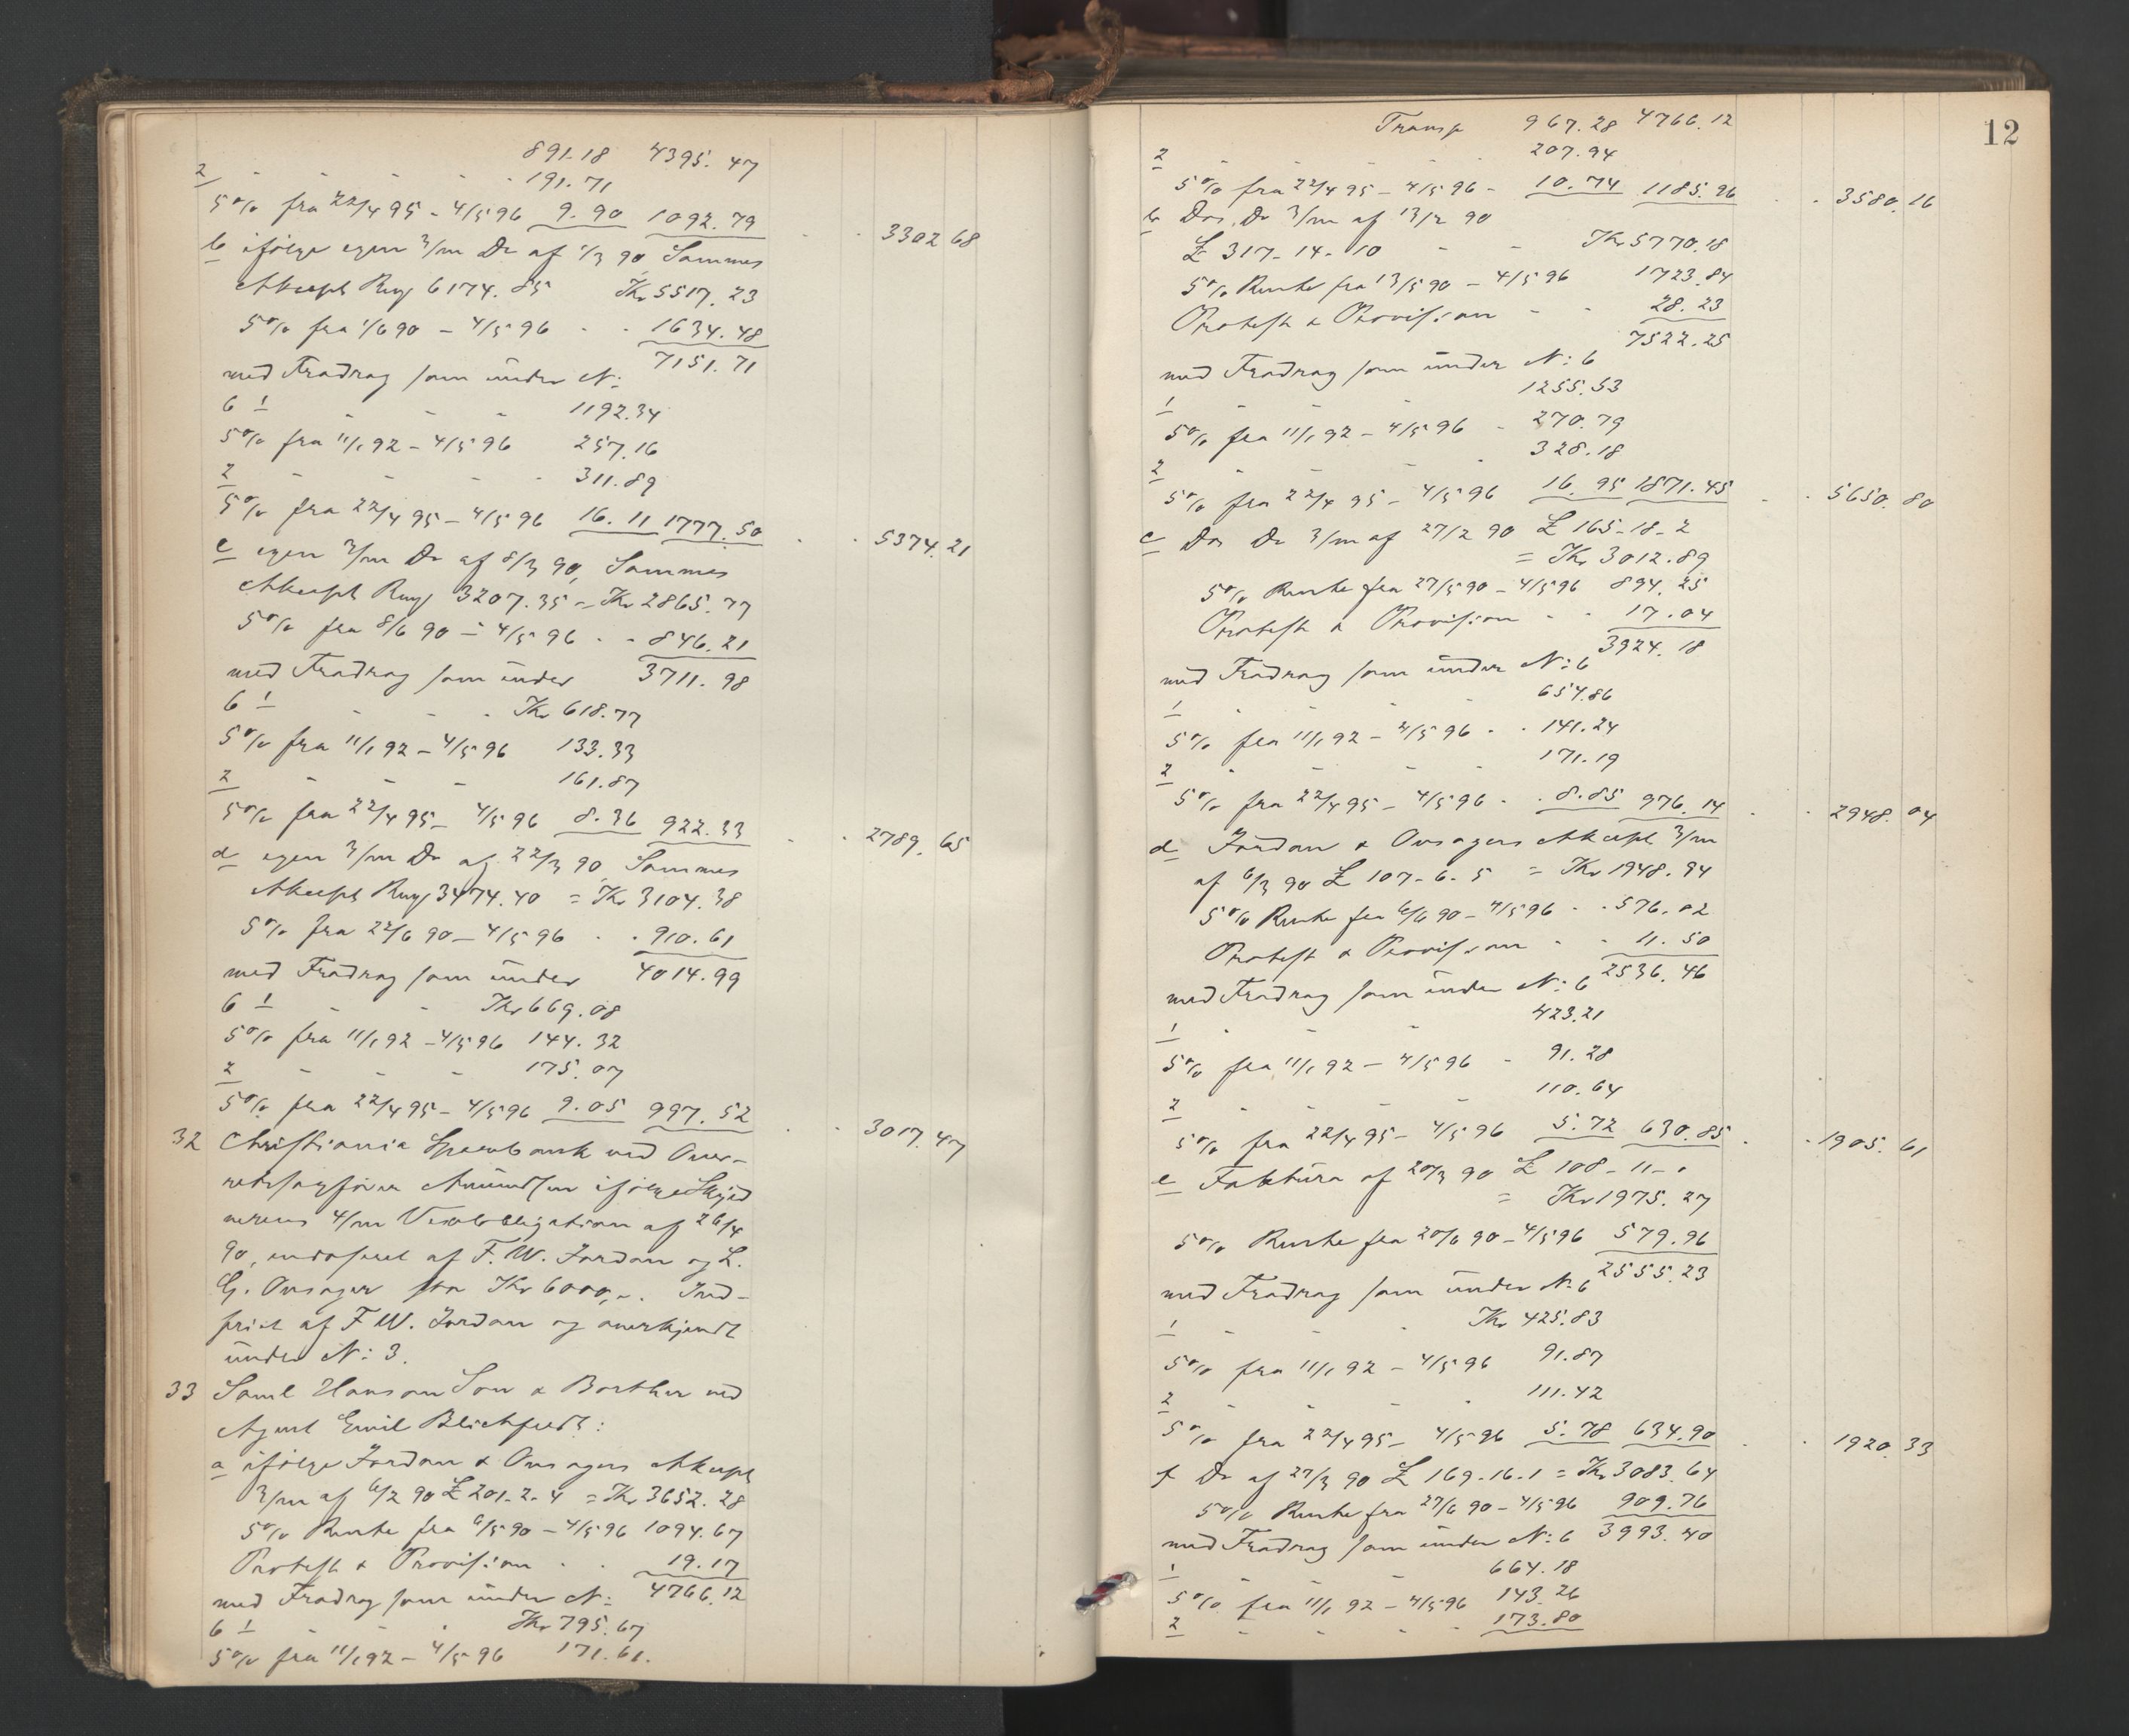 891.18 4395.47
2 - - - - - 191.71
5% fra 22/4 95 - 4/5 96 9.90 1092.79 - - 3302 68
b ifølge egen 3/m Dr af 1/3 90, Sammes
Akcept Rmf 6174.85 Kr 5517.23
5% fra 1/6 90 - 4/5 96 - - 1634.48
7151.71
med Fradrag som under N:
6 1 - - - 1192.34
5% fra 11/1 92 - 4/5 96 257.16
2 - - - - 311.89
5% fra 22/4 95 - 4/5 96 16.11 1777.50 - - 5374.21
c egen 3/m Dr af 8/3 90, Sammes
Akcept Rmf 3207.35 = Kr 2865.77
5% fra 8/6 90 - 4/5 96 - - 846.21
med Fradrag som under 3711.98
6 1 - - - Kr 618.77
5% fra 11/1 92 - 4/5 96 133.33
2 - - - 161.87
5% fra 22/4 95 - 4/5 96 8.36 922.33 - - 2789.65
d egen 3/m Dr af 22/3 90, Sammes
Akcept Rmf 3474.40 = Kr 3104.38
5% fra 22/6 90 - 4/5 96 - - 910.61
med Fradrag som under 4014.99
6 1 - - Kr 669.08
5% fra 11/1 92 - 4/5 96 144.32
2 - - - 175.07
5% fra 22/4 95 - 4/5 96 9.05 997.52 - - 3017.47
32 Christiania Sparebank ved Over-
retssagfører Amundsen ifølge Skyld
nerens 4/m Vexelobligation af 26/4
90, endosseret af F. W. Jordan og L.
G. Onsager stor Kr 6000,-. Ind-
friet af F W. Jordan og anerkjendt
under N: 3.
33 Saml Hanson Son & Borther ved
Agent Emil Blichfeldt:
a ifølge Jordan & Onsagers Akcept
3/m af 6/2 90 £ 201-2-4 = Kr 3652.28
5% Rente fra 6/5 90 - 4/5 96 1094.67
Protest & Provision - - 19.17
med Fradrag som under N: 4766.12
6 1 - - - Kr 795.67
5% fra 11/1 92 - 4/5 96 171.61.
12
Transp 967.28 4766.12
2 - - - - - 207.94
5% fra 22/4 95 - 4/5 96 - 10.74 1185.96 - - 3580.16
b Do. Dr 3/m af 13/2 90
£ 317-14-10 - - Kr 5770.18
5% Rente fra 13/5 90 - 4/5 96 1723.84
Protest & Provision - - 28.23
7522.25
med Fradrag som under N: 6
1 - - - - 1255.53
5% fra 11/1 92 - 4/5 96 - 270.79
2 - - - - 328.18
5% fra 22/4 95 - 4/5 96 16.95 1871.45 - - 5650.80
c Do Dr 3/m af 27/2 90 £ 165-18-2
= Kr 3012.89
5% Rente fra 27/5 90 - 4/5 96 894.25
Protest & Provision - - 17.04
3924.18
med Fradrag som under N: 6
1 - - - - 654.86
5% fra 11/1 92 - 4/5 96 - - 141.24
2 - - - - 171.19
5% fra 22/4 95 - 4/5 96 - - 8.85 976.14 - - 2948.04
d Jordan & Onsagers Akcept 3/m
af 6/3 90 £ 107-6-5 = Kr 1948.94
5% Rente fra 6/6 90 - 4/5 96 - - 576.02
Protest & Provision - - 11.50
2536.46
med Fradrag som under N: 6
1 - - - 423.21
5% fra 11/1 92 - 4/5 96 - 91.28
2 - - - - 110.64
5% fra 22/4 95 - 4/5 96 5.72 630.85 - - 1905.61
e Faktura af 20/3 90 £ 108-11-0
= Kr 1975.27
5% Rente fra 20/6 90 - 4/5 96 579.96
2555.23
med Fradrag som under N: 6
1 - - - Kr 425.83
5% fra 11/1 92 - 4/5 96 91.87
2 - - - - 111.42
5% fra 22/4 95 - 4/5 96 5.78 634.90 - - 1920.33
f Dr af 27/3 90 £ 169.16.1 = Kr 3083.64
5% Rente fra 27/6 90 - 4/5 96 909.76
med Fradrag som under N: 6 3993.40
1 - - - - 664.18
5% fra 11/1 92 - 4/5 96 143.26
2 - - - - 173.80